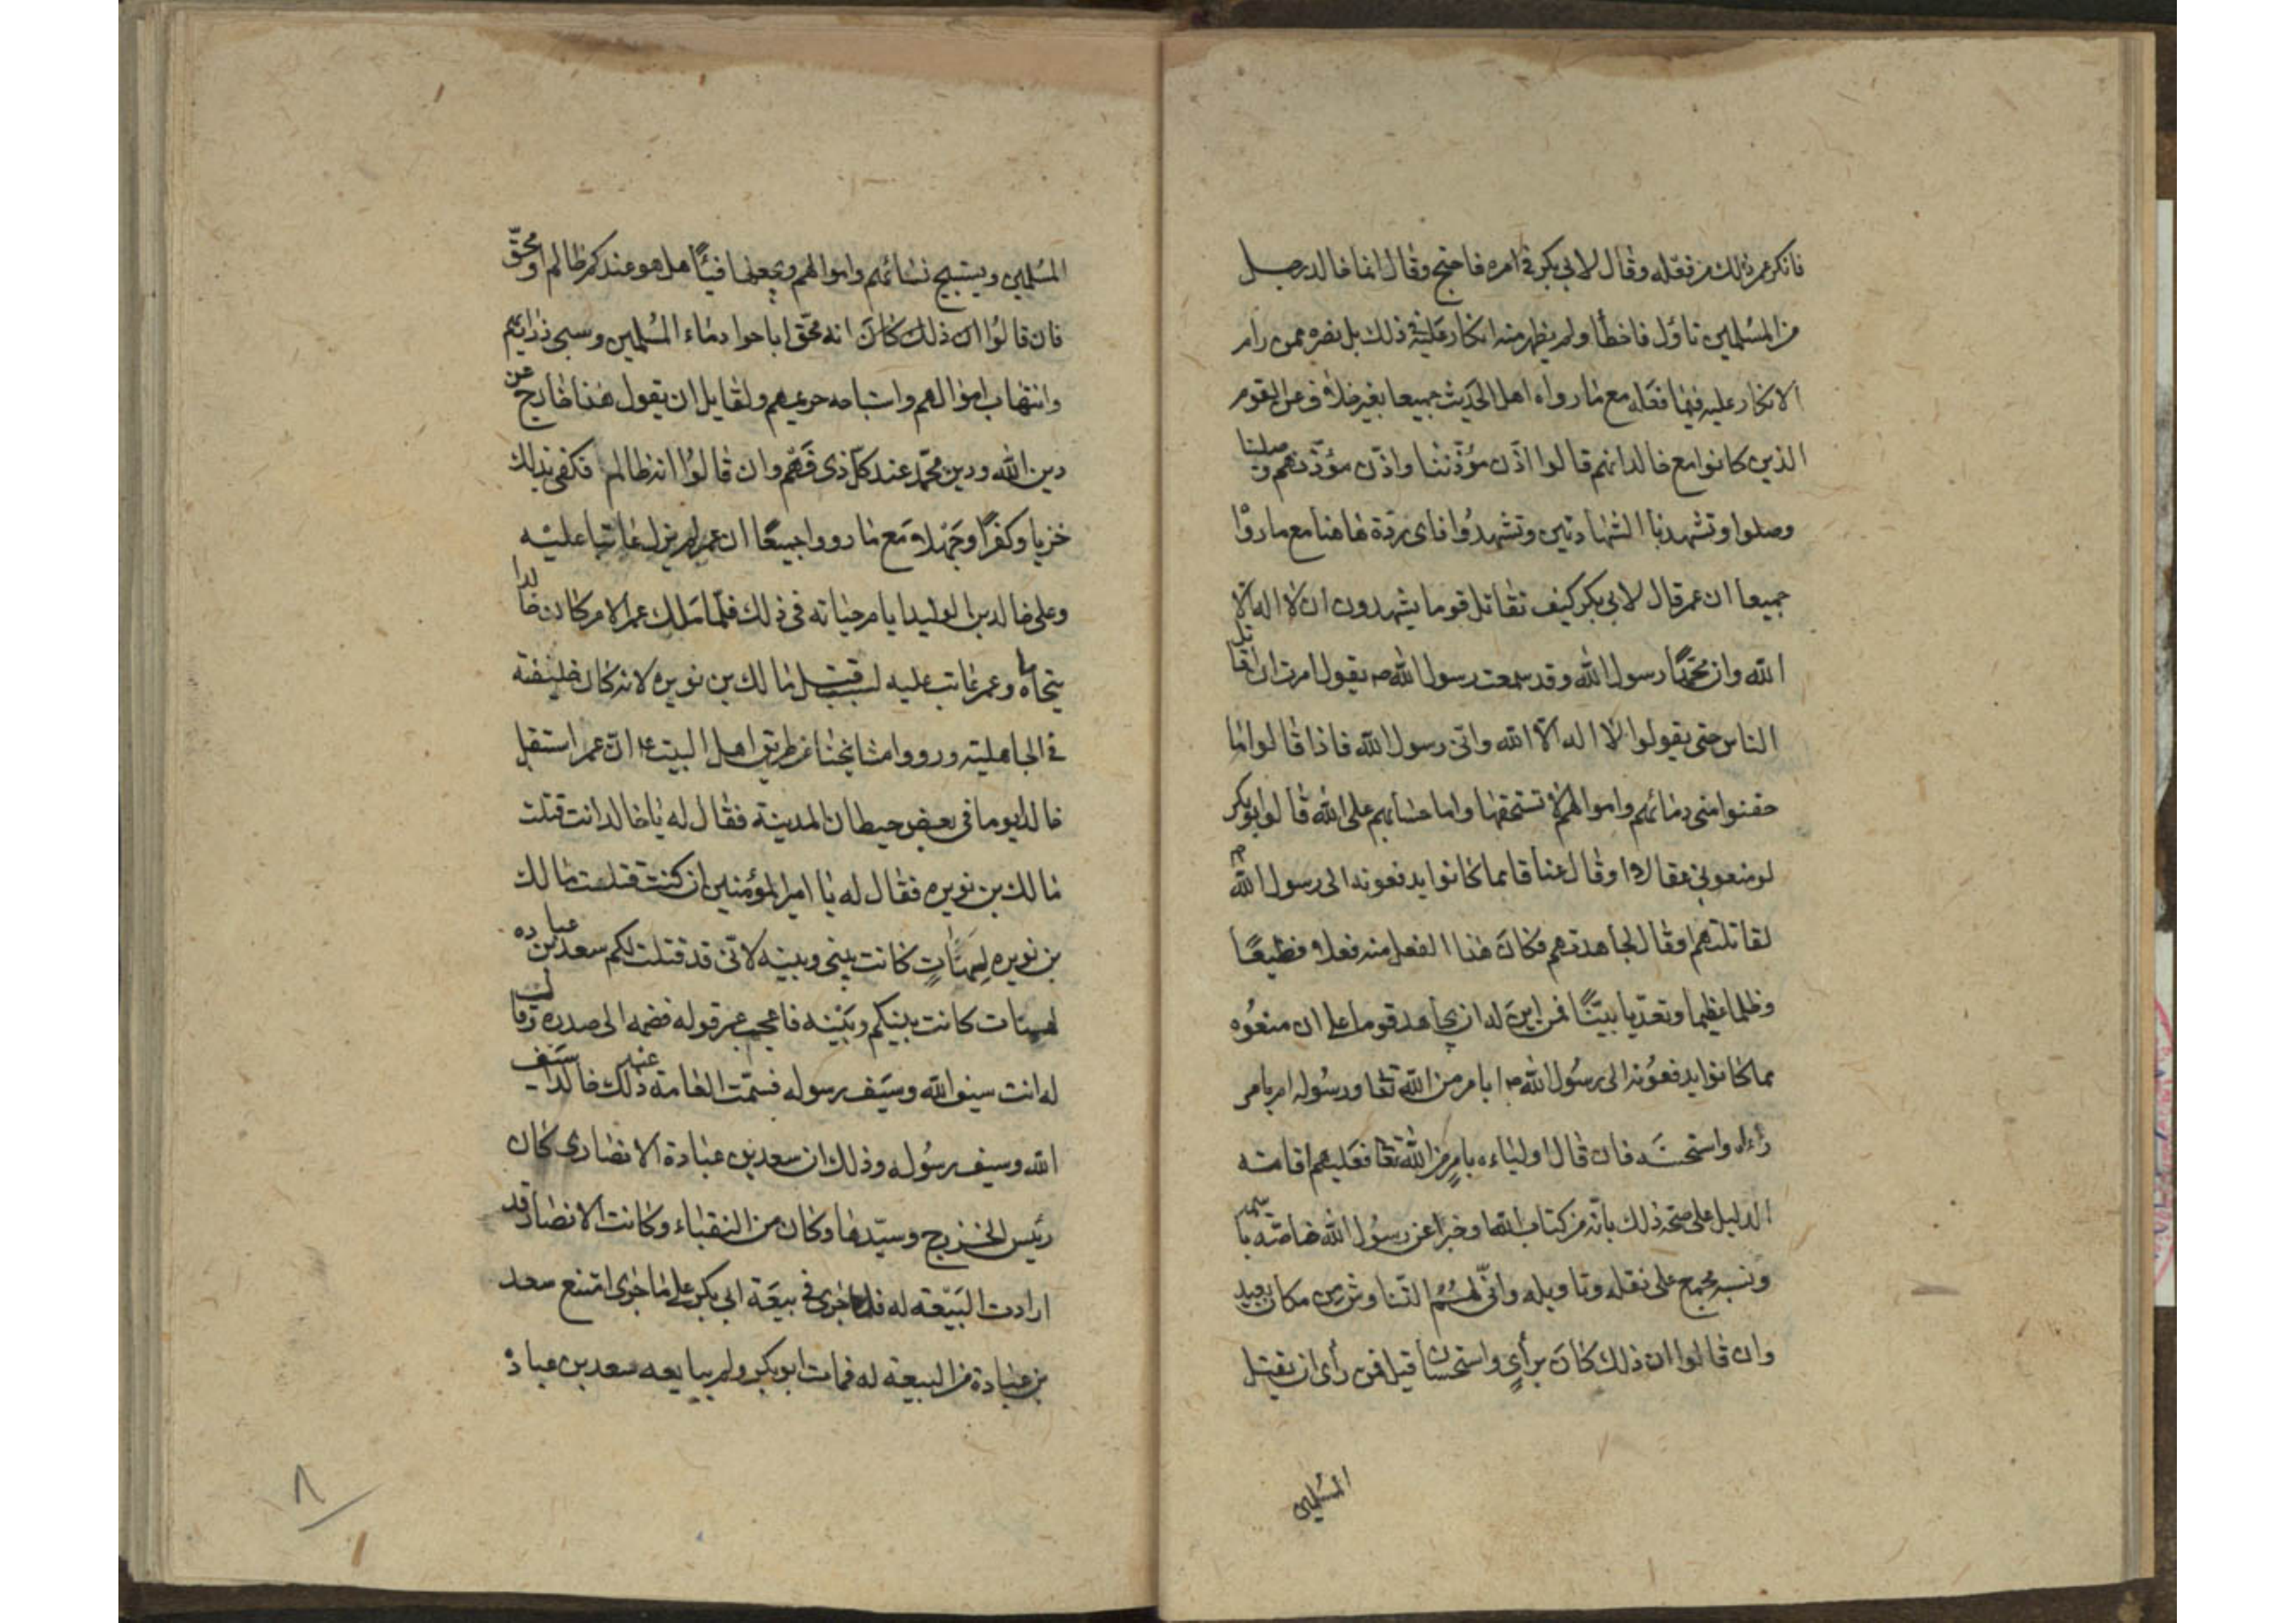 فانكر عمر ذلك من فعله وقال لابي بكر في امره فاحتج وقال انما خالد رجل
من المسلمين تاول فاخطأ ولم يظهر منه انكار عليه في ذلك بل نصره ممن رام
الانكار عليه فيما فعله مع ما رواه اهل الحديث جميعا بغير خلاف عن القوم
الذين كانوا مع خالد انهم قالوا اذّن مؤذّننا واذّن مؤذّنهم وصلينا
وصلوا وتشهدنا الشهادتين وتشهدوا فاى ردّة هاهنا مع ما روْوا
جميعا ان عمر قال لابي بكر كيف نقاتل قوما يشهدون ان لا اله الا
الله وان محمّدًا رسول الله وقد سمعت رسول الله ص يقول امرت ان اقاتل
الناس حتى يقولوا لا اله الا الله وانّى رسول الله فاذا قالوا
حقنوا منى دمائهم واموالهم الا تستحقها واما حسابهم على الله قالوا ابو بكر
لو منعونى عقالا او قال عناقا مما كانوا يدفعونه الى رسول الله ص
لقاتلتهم او قال لجاهدتهم فكان هذا الفعل منه فعلا فظيعًا
وظلما عظيما وتعدّيا بيّنًا فمن اين له ان يجاهد قوما على ان منعوه
مما كانوا يدفعونه الى رسول الله ص ابامر من الله تعا ورسوله ام بامر
رأءاه واستحسنه فان قال اولياءه بامرٍ من الله تعا فعليهم اقامته
الدليل على صحة ذلك بانّه من كتاب الله او خبرا عن رسول الله خاصّة
ونسبه مجمع على نقله وتاويله وانّى لهُمُ التناوش من مكان بعيد
وان قالوا ان ذلك كان برأيٍ واستحسان قيل فمن رأى ان يقتل
المسلمين
المسلمين ويستبيح نسائهم واموالهم ويجعلها فيئًا هل هو عندكم ظالم او محقّ
فان قالوا ان ذلك كان انه محقّ اباحوا دماء المسلمين وسبى ذراريهم
وانتهاب اموالهم واستباحه حريمهم ولقايل ان يقول هذا خارج عن
دين الله ودين محمّد عند كلّ ذى فَهْم وان قالوا انه ظالم فكفى بذلك
خزيا وكفرًا وجَهْلا مع ما رووا جميعًا ان عمر لم يزل عاتبا عليْه
وعلى خالد بن الوليد ايام حياته فى ذلك فلمّا ملك عمر الامر كان خالدا
يتحاماه وعمر عاتب عليه لسبب قتل مالك بن نويره لانه كان خليفته
في الجاهلية ورووا مشايخنا من طريق اهل البيت ع انّ عمر استقبل
خالد يوما فى بعض حيطان المدينة فقال له يا خالد انت قتلت
مالك بن نويره فقال له يا امير المؤمنين ان كنت قتلت مالك
بن نويره لِهَنَاتٍ كانت بينى وبينه لانّى قد قتلت لكم سعد بن عباده
لهنات كانت بينكم وبَيْنه فاعجب عمر قوله فضمه الى صدره وقال
له انت سيف الله وسَيف رسوله فسمّت العامة عند ذلك خالدا سَيف
الله وسيف رسُوله وذلك ان سعد بن عبادة الانصارى كان
رئيس الخزرج وسيّدها وكان من النقباء وكانت الانصار قد
ارادت البَيْعة له فلما جرى في بيعَة ابى بكر على ما جرى امتنع سعد
بن عبادة من البيعة له فمات ابو بكر ولم يبايعه سعد بن عبادة
٨